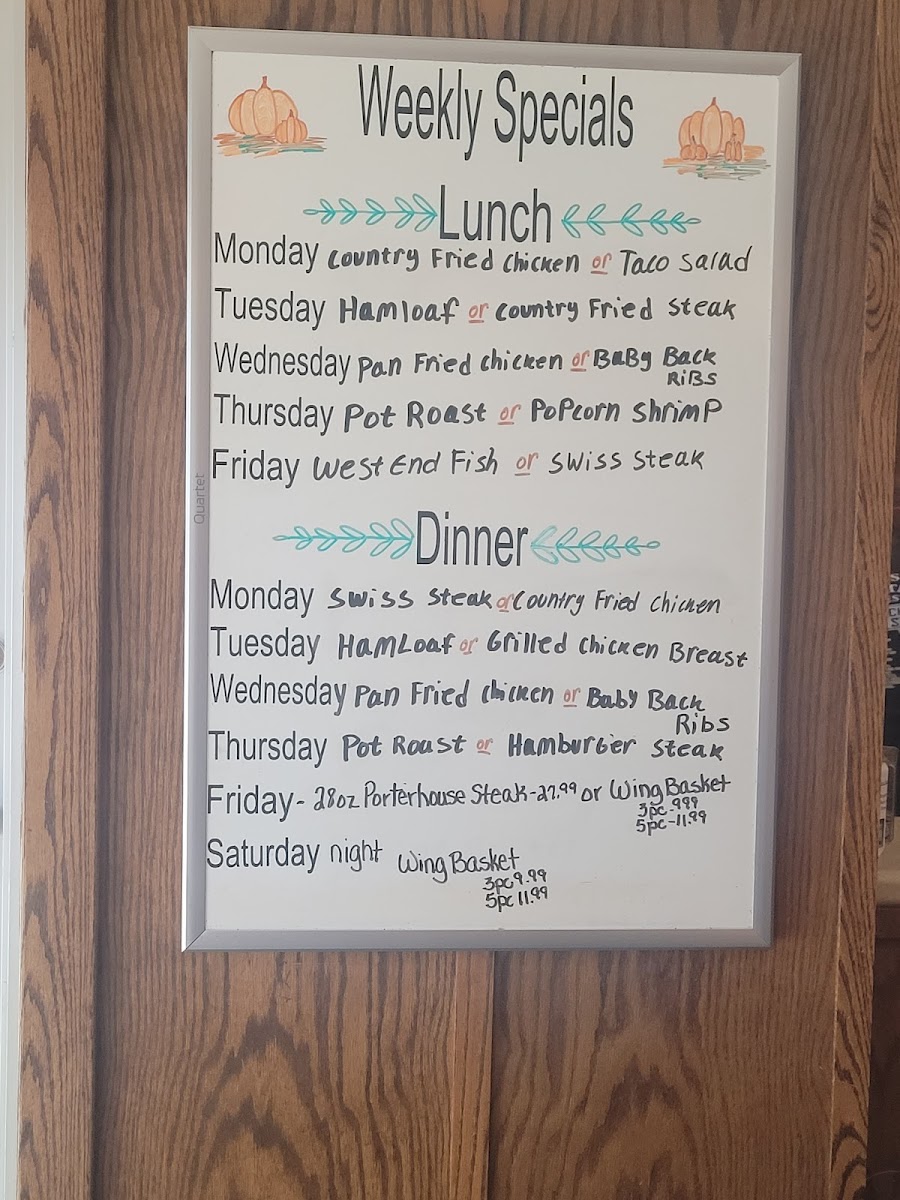 Weekly Specials
Lunch
Monday Country Fried Chicken or Taco Salad
Tuesday Hamloaf or Country Fried Steak
Wednesday Pan Fried Chicken or Baby Back
Ribs
Thursday Pot Roast or Popcorn Shrimp
Friday West End Fish or Swiss Steak
Quartet
Dinner
Monday Swiss Steak or Country Fried Chicken
Tuesday HamLoaf or Grilled Chicken Breast
Wednesday Pan Fried Chicken or Baby Back
Ribs
Thursday Pot Roast or Hamburger Steak
Friday- 28oz Porterhouse Steak-27.99 or Wing Basket
3pc-999
5pc-11.99
Saturday night Wing Basket
3pc 9.99
5pc 11.99